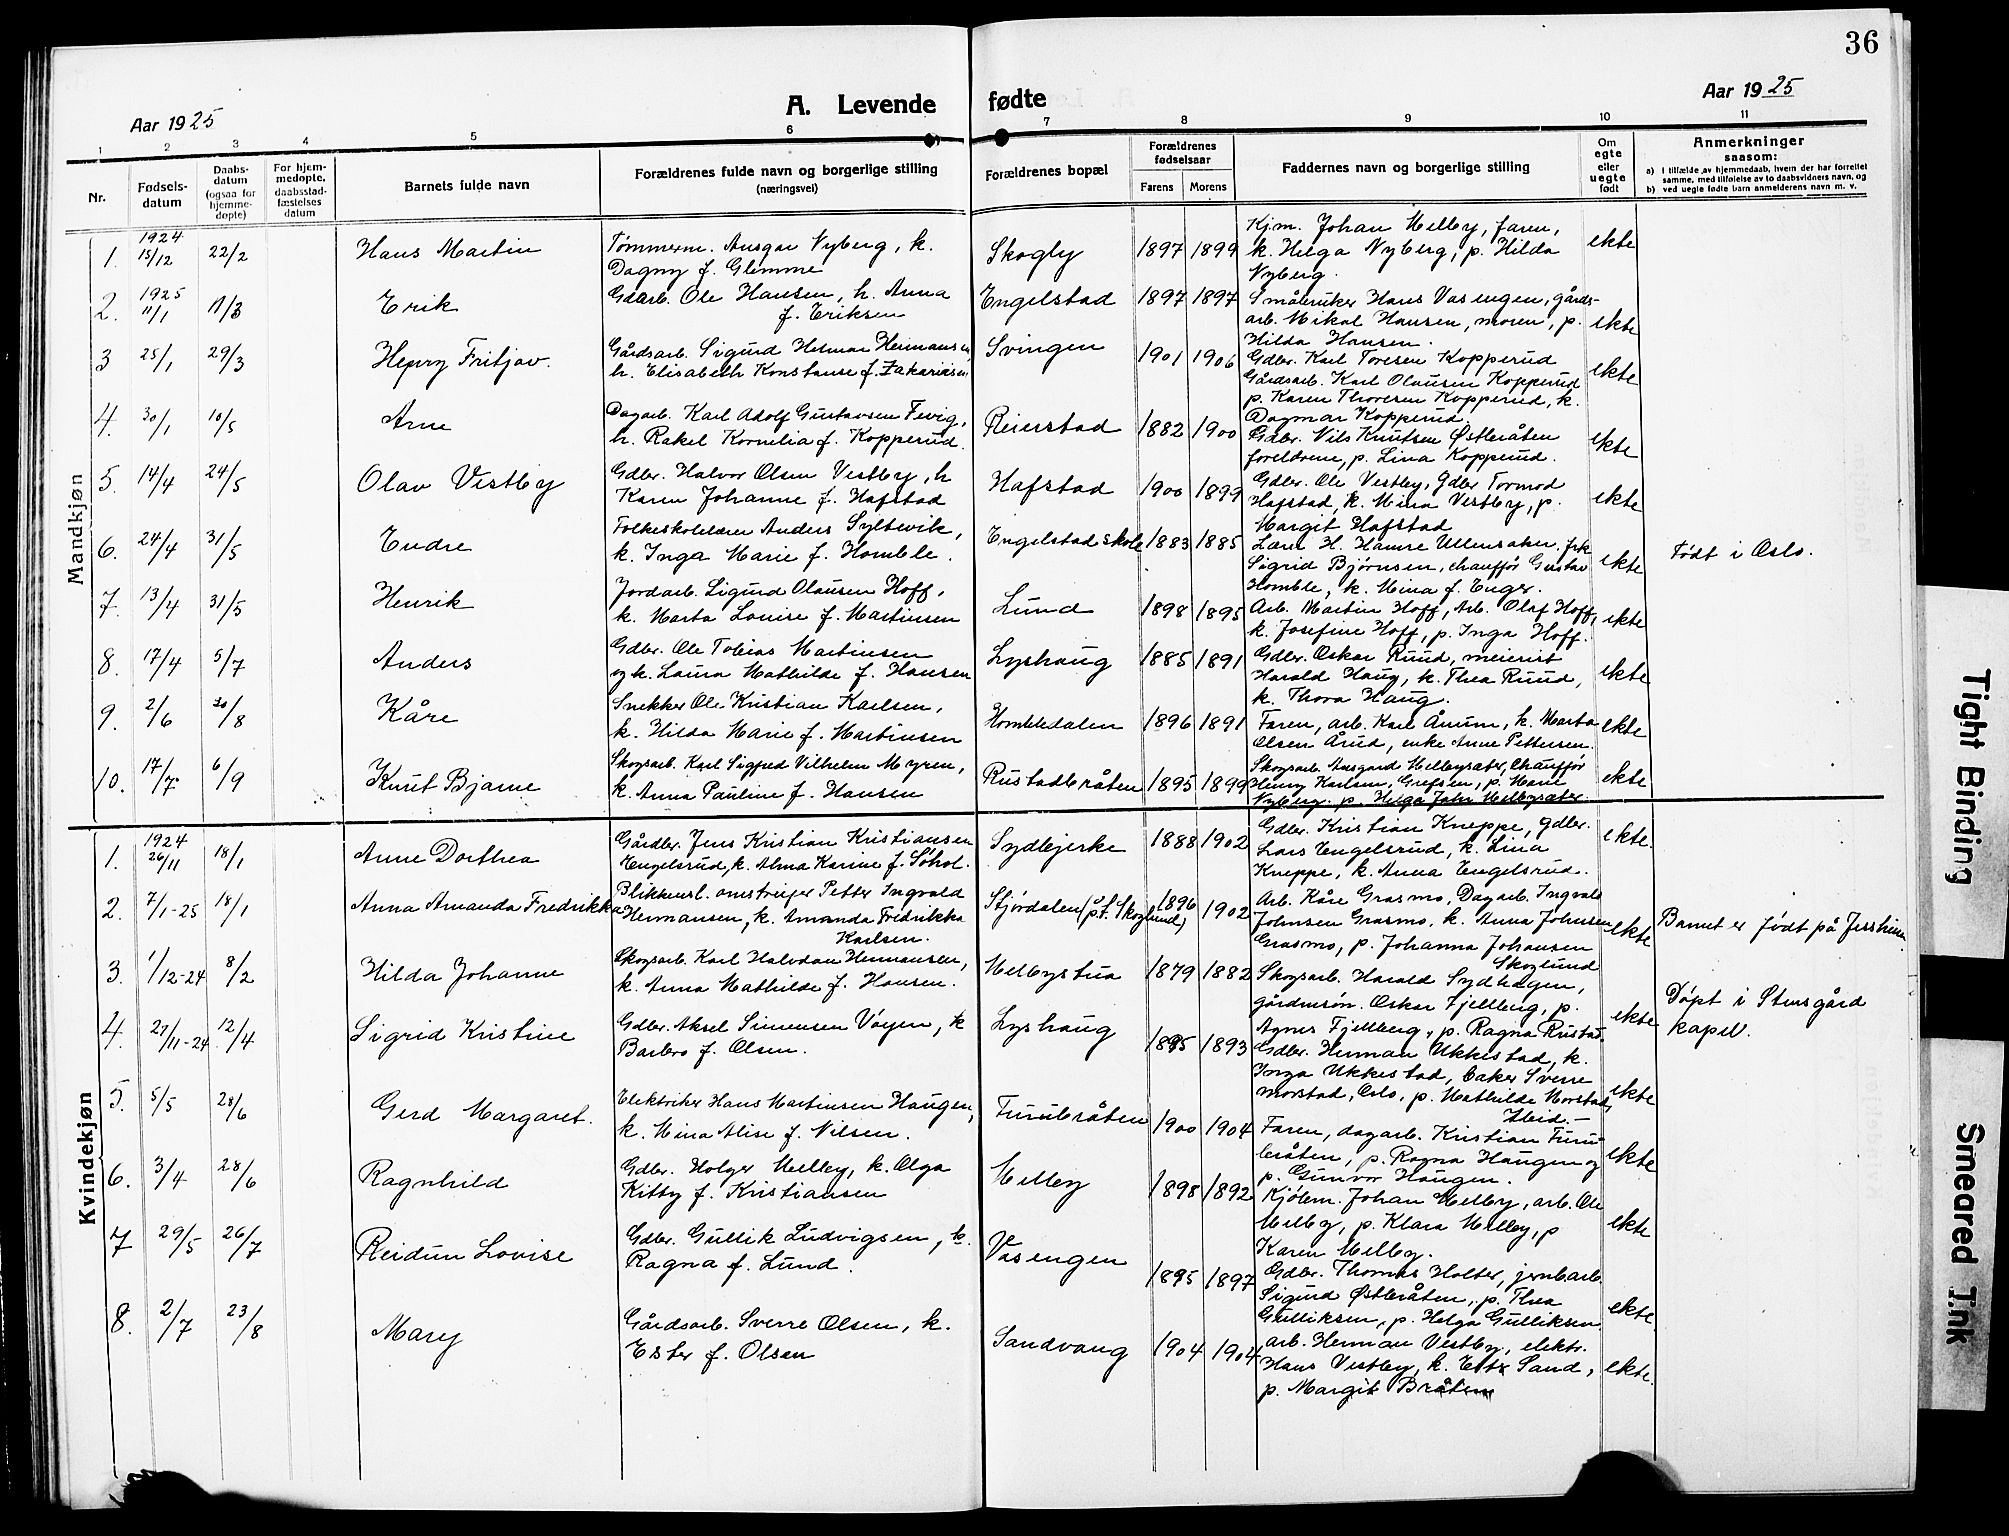 36
Aar 1925
A. Levende fødte
Aar 1925
1 2 3 4 5 6 7 8 9 10 11
Nr.
Fødsels-
datum
Daabs-
datum
(ogsaa for
hjemme-
døpte)
For hjem-
medøpte,
daabsstad-
fæstelses
datum
Barnets fulde navn
Forældrenes fulde navn og borgerlige stilling
(næringsvei)
Forældrenes bopæl
Forældrenes
fødselsaar
Farens Morens
Faddernes navn og borgerlige stilling
Om
egte
eller
uegte
født
Anmerkninger
saasom:
a) I tilfælde av hjemmedaab, hvem der har forrettet
samme, med tilføielse av to daabsvidners navn, og
b) ved uegte fødte barn anmelderens navn m. v.
Mandkjøn
1. 1924 15/12 22/2 Hans Martin
Tømmerm. Ansgar Nyberg, k.
Dagny f. Glemme
Skogly 1897 1899
Kjm. Johan Melby, faren,
k. Helga Nyberg, p. Hilda
Nyberg.
ekte
2. 1925 11/1 1/3 Erik
Gdarb. Ole Hansen, h. Anna
f. Eriksen
Engelstad 1897 1897
Småbruker Hans Vasengen, gårds-
arb. Mikal Hansen, moren, p.
Hilda Hansen.
ekte
3 25/1 29/3 Henry Fritjov.
Gårdsarb. Sigurd Helmar Hermansen
h. Elisabeth Konstanse f. Zakariasen
Svingen 1901 1906
Gdbr. Karl Toresen Kopperud
Gårdsarb. Karl Olausen Kopperud
p. Karen Thoresen Kopperud, k.
Dagmar Kopperud.
ekte
4. 30/1 10/5 Arne
Dagarb. Karl Adolf Gustavsen Fevig,
h. Rakel Kornelia f. Kopperud.
Reierstad 1882 1900
Gdbr. Nils Knutsen Østbråten
foreldrene, p. Lina Kopperud.
ekte
5. 14/4 24/5 Olav Vestby
Gdbr. Halvor Olsen Vestby, h
Karen Johanne f. Hafstad
Hafstad 1900 1899
Gdbr. Ole Vestby, Gdbr Tormod
Hafstad, k. Mina Vestby, p.
Margit Hafstad
ekte
6. 24/4 31/5 Endre
Folkeskolelærer Anders Syltevik,
k. Inga Marie f. Homble.
Engelstad skole 1883 1885
Lærer H. Hamre Ullensaker, frk
Sigrid Bjørnsen, chauffør Gustav
Homble, k. Mina f. Enger.
ekte
Født i Oslo.
7. 13/4 31/5 Henrik
Jordarb. Sigurd Olausen Hoff,
k. Marta Lovise f. Martinsen
Lund 1898 1895
Arb. Martin Hoff, Arb. Olaf Hoff,
k. Josefine Hoff, p. Inga Hoff.
ekte
8. 17/4 5/7 Anders
Gdbr. Ole Tobias Martinsen
og k. Laura Mathilde f. Hansen
Lyshaug 1885 1891
Gdbr. Oskar Ruud, meierist
Harald Haug, k. Thea Ruud,
k. Thora Haug.
ekte
9. 2/6 30/8 Kåre
Snekker Ole Kristian Karlsen,
k. Hilda Marie f. Martinsen
Hombledalen 1896 1891
Faren, arb. Karl Årum, k. Marta
Olsen Årud, enke Anne Pettersen.
ekte
10. 17/7 6/9 Knut Bjarne
Skogsarb. Karl Sigfred Vilhelm Myren,
k. Anna Pauline f. Hansen
Rustadbråten 1895 1899
Skogsarb. Ansgard Melbysæter, Chauffør
Henry Karlsen, Grefsen, p. Marie
Nyberg. p. Helga John Melbysæter.
ekte
Kvindekjøn
1. 1924 26/11 18/1 Anne Dorthea
Gårdbr. Jens Kristian Kristiansen
Engelsrud, k. Alma Karine f. Søhol.
Sydbjerke 1888 1902
Gdbr. Kristian Kneppe, gdbr.
Lars Engelsrud, k. Lina
Kneppe, k. Anna Engelsrud.
ekte.
2. 7/1-25 18/1 Anna Amanda Fredrikka
Blikkensl. omstreifer Petter Ingvald
Hermansen, k. Amanda Fredrikka
Karlsen.
Stjørdalen (p.t. Skoglund) 1896 1902
Arb. Kåre Grasmo, Dagarb. Ingvald
Johnsen Grasmo, k. Anna Johnsen
Grasmo, p. Johanna Johansen
Skoglund
ekte
Barnet er født på Jessheim
3. 1/12-24 8/2 Hilda Johanne
Skogsarb. Karl Halvdan Hermansen,
k. Anna Mathilde f. Hansen.
Melbystua 1879 1882
Skogsarb. Harald Sydhagen,
gårdmsøn. Oskar Fjellberg, p.
Agnes Fjellberg, p. Ragna Rustad.
ekte
Døpt i Stensgård
kapel.
4. 27/11-24 12/4 Sigrid Kristine
Gdbr. Aksel Simensen Vøyen, k
Barbro f. Olsen.
Lyshaug 1895 1893
Gdbr. Herman Ukkestad, k.
Inga Ukkestad, baker Sverre
Morstad, Oslo, p. Mathilde Morstad,
Ibid.-
ekte
5. 5/5 28/6 Gerd Margaret.
Elektriker Hans Martinsen Haugen,
k. Mina Alise f. Nilsen.
Furubråten 1900 1904
Faren, dagarb. Kristian Furu-
bråten, p. Ragna Haugen og
p. Gunvor Haugen.
ekte
6. 3/4 28/6 Ragnhild
Gdbr. Holger Melby, k. Olga
Kitty f. Kristiansen
Melby 1898 1892
Kjølem. Johan Melby, arb. Ole
Melby, p. Klara Melby, p
Karen Melby.
ekte
7 29/5 26/7 Reidun Lovise
Gdbr. Gullik Ludvigsen, k.
Ragna f. Lund.
Vasengen 1895 1897
Gdbr. Thomas Holter, jernbarb.
Sigurd Østbråten, p. Thea
Gulliksen, p. Helga Gulliksen.
ekte.
8. 2/7 23/8 Mary
Gårdsarb. Sverre Olsen, k.
Ester f. Olsen
Sandvang 1904 1904
arb. Herman Vestby, elektr.
Hans Vestby, k. Sand,
p. Margit Bråten
ekte.
Tight Binding
Smeared Ink